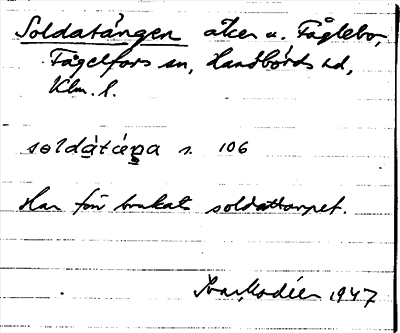 Soldatängen åker u. Fåglebo,
Fågelfors sn, Handbörds hd,
Klm. l.
soldàtáŋa s. 106
Har förr brukats soldattorpet.
Ivar Modéer 1947